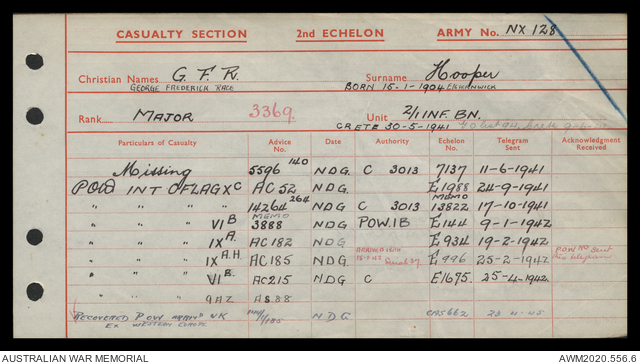 CASUALTY SECTION 2nd ECHELON ARMY No. NX 128
Christian Names G. F. R. Surname Hooper
GEORGE FREDERICK RACE BORN 15-1-1904
Rank MAJOR 3369 Unit 2/1 INF. BN.
CRETE 30-5-1941
Particulars of Casualty Advice No. Date Authority Echelon No. Telegram Sent Acknowledgment Received
Missing 5596 140 NDG. C 3013 7137 11-6-1941
POW INT OFLAG XC AC 52 NDG. E1988 24-9-1941
" " " 14264 264 NDG C 3013 13822 17-10-1941
MEMO MEMO
" " " VI B 3888 NDG POW.1B E144 9-1-1942
" " " IX A. AC 182 NDG E934 19-2-1942
" " " IX A.H. AC 185 NDG. E996 25-2-1942 P.O.W. No sent this telegram
" " " VI B. AC 215 NDG C E1675. 25-4-1942.
" " 9AZ AS 88
RECOVERED POW UK NDG CAS662
EX WESTERN EUROPE
AUSTRALIAN WAR MEMORIAL AWM2020.556.6